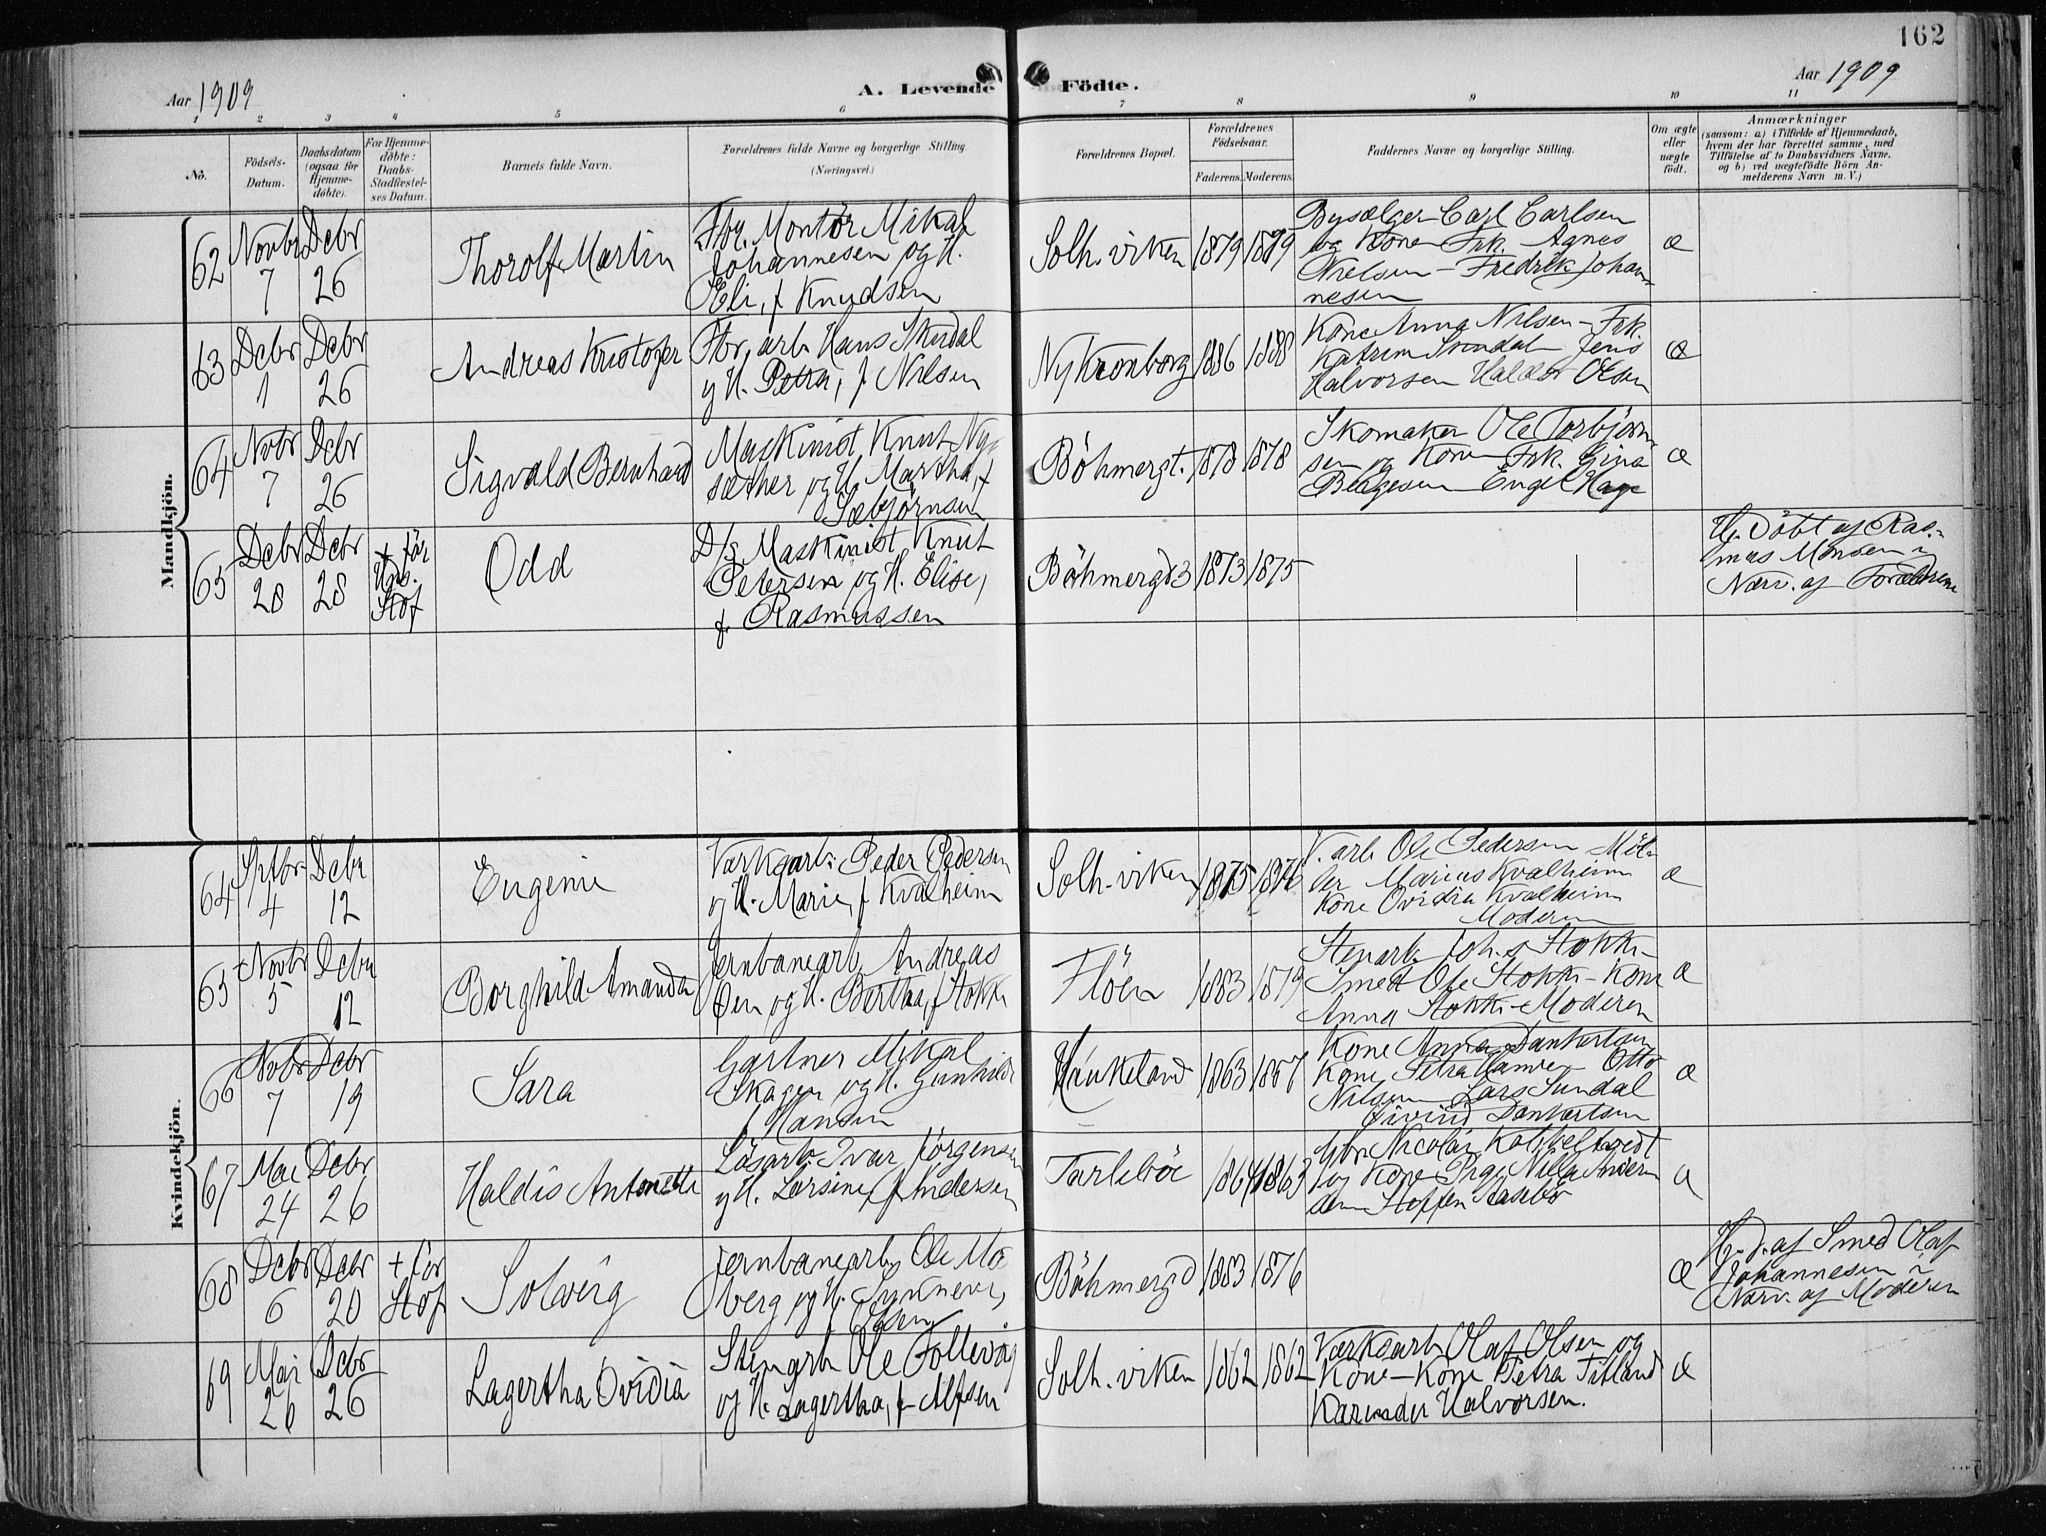 162
Aar 1909
A. Levende Födte.
Aar 1909
1 2 3 4 5 6 7 8 9 10 11
No.
Födsels-Datum.
Daabsdatum (ogsaa for Hjemme-döbte).
For Hjemme-döbte: Daabs-Stadfæstel-ses Datum.
Barnets fulde Navn.
Forældrenes fulde Navne og borgerlige Stilling.
(Næringsvei.)
Forældrenes Bopæl.
Forældrenes Födselsaar.
Faderens. Moderens.
Faddernes Navne og borgerlige Stilling.
Om ægte eller uægte födt.
Anmærkninger
(saasom: a) i Tilfælde af Hjemmedaab,
hvem der har forrettet samme, med
Tilföielse af to Daabsvidners Navne,
og b) ved uægtefödte Börn An-
melderens Navn m. V.)
Mandkjön.
62 Novbr 7 Dcbr 26
Thorolf Martin
Fbr. Montör Mikal
Johannesen og H.
Eli, f Knudsen
Solh.viken 1879 1879
Bysælger Carl Carlsen
og Kone Frk. Agnes
Nielsen - Fredrik Johan
nesen
æ
63 Dcbr 1 Dcbr 26
Andreas Kristofer
Fbr. arb. Hans
og H. Petra, f Nilsen
Ny Kronborg 1886 1888
Kone Anna Nilsen - Frk.
Jens
Halvorsen Haldor Olsen
æ
64 Novbr 7 Dcbr 26
Sigvald Bernhard
Maskinist Knut Ny
sæther og H. Martha, f
Sæbjörnsen
Böhmergt. 1878 1878
Skomaker Ole Torbjörn
sen og Kone Frk. Gina
Engel Hage
æ
65 Dcbr 28 Dcbr 28
+ för
Stöf
Odd
D/s Maskinist Knut
Petersen og H. Elise,
f. Rasmussen
Böhmergd 3 1873 1875
Hj. Döbt af Ras-
mus Monsen i
Nærv. af Forældrene
Kvindekjön.
64 Sptbr 4 Dcbr 12
Eugenie
Værksarb. Peder Pedersen
og H. Marie, f Kvalheim
Solh.viken 1875 1876
V. arb Ole Pedersen Möl
ler Marius Kvalheim
Kone Ovidia Kvalheim
Moderen
æ
65 Novbr 5 Dcbr 12
Borghild Amanda
Jernbanearb. Andreas
Öen og H. Bertha, f Stokke
Flöen 1883 1879
Stenarb. Joh.s Stokke
Smed Ole Stokke - Kone
Anna Stokke - Moderen
æ
66 Novbr 7 Dcbr 19
Sara
Gartner Mikal
Skagen og H. Gunhild
f Hansen
Haukeland 1863 1867
Kone Anna Dankertsen
Kone Petra Hamre - Otto
Nilsen Lars Sundal
Eivind Dankertsen
æ
67 Mai 24 Dcbr 26
Haldis Antonette
Lösarb. Ivar Jörgensen
og H. Larsine, f Andersen
Tarlebö 1864 1863
Nicolai
og Kone Pige Nilla Ander
sen Steffen
æ
68 Dcbr 6 Dcbr 20
+ för
Stöf
Solveig
Jernbanearb. Ole Mo
berg og H. Synneve,
Olsen
Böhmergd 1883 1876
æ
Hj. d. af Smed Olaf
Johannesen i
Nærv. af Moderen
69 Mai 26 Dcbr 26
Lagertha Ovidia
Stenarb Ole Follevåg
og H. Lagertha, f Alfsen
Solh.viken 1862 1862
Værksarb Olaf Olsen og
Kone - Kone Petra Titland
Halvorsen.
æ